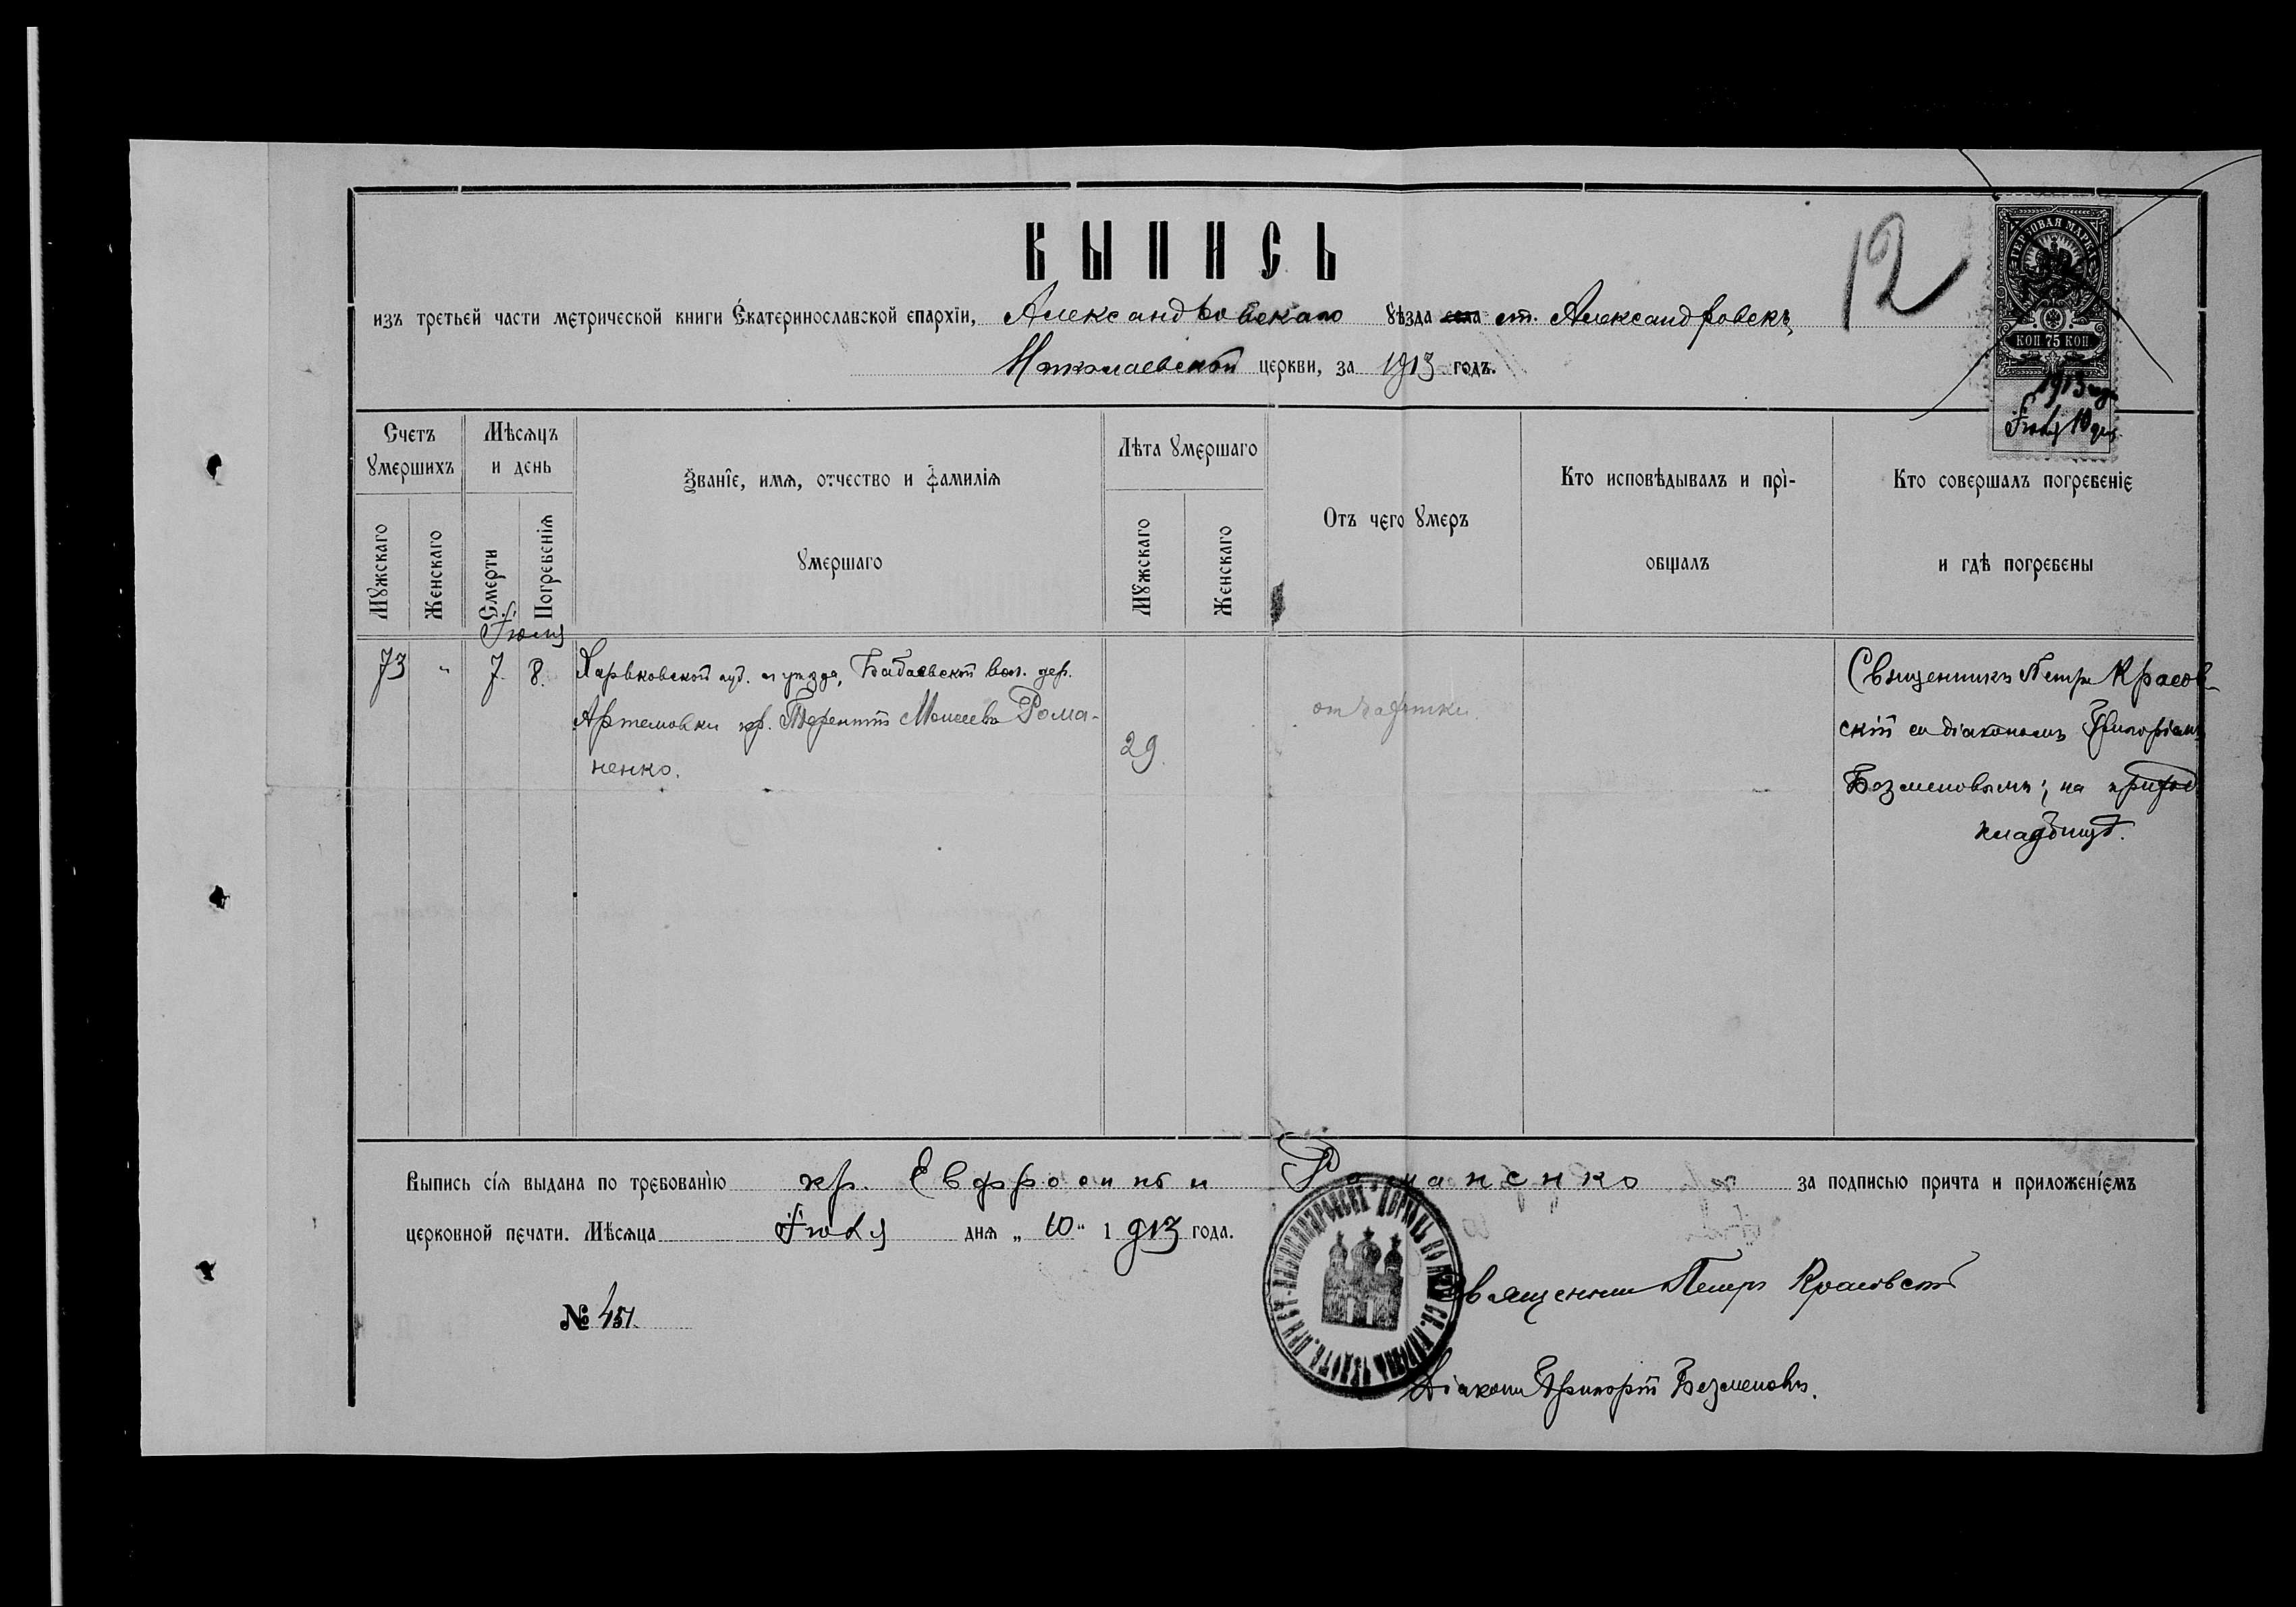 ВЫПИСЬ
12
изъ третьей части метрической книги Екатеринославской епархіи, Александровскаго уѣзда села ст. Александровскъ,
Николаевской церкви, за 1913 годъ.
ГЕРБОВАЯ МАРКА
КОП 75 КОП
1913 года
Іюля 10 дня
Счетъ умершихъ
Мужскаго
Женскаго
Мѣсяцъ и день
Смерти
Погребенія
Званіе, имя, отчество и фамилія
умершаго
Лѣта умершаго
Мужскаго
Женскаго
Отъ чего умеръ
Кто исповѣдывалъ и прі-
общалъ
Кто совершалъ погребеніе
и гдѣ погребены
Іюля
73 " 7. 8.
Харьковской губ. и уѣзда, Бабаевской вол. дер.
Артемовки кр. Терентій Моисеевъ Рома-
ненко.
29.
от чахотки.
Священникъ Петръ Красов-
скій съ діакономъ Григоріемъ
Безменовымъ; на приход.
кладбищѣ.
Выпись сія выдана по требованію кр. Евфросиньи Романенко за подписью причта и приложеніемъ
церковной печати. Мѣсяца Іюля дня „ 10 " 1913 года.
№ 451.
Священникъ Петръ Красовскій
Діаконъ Григорій Безменовъ.